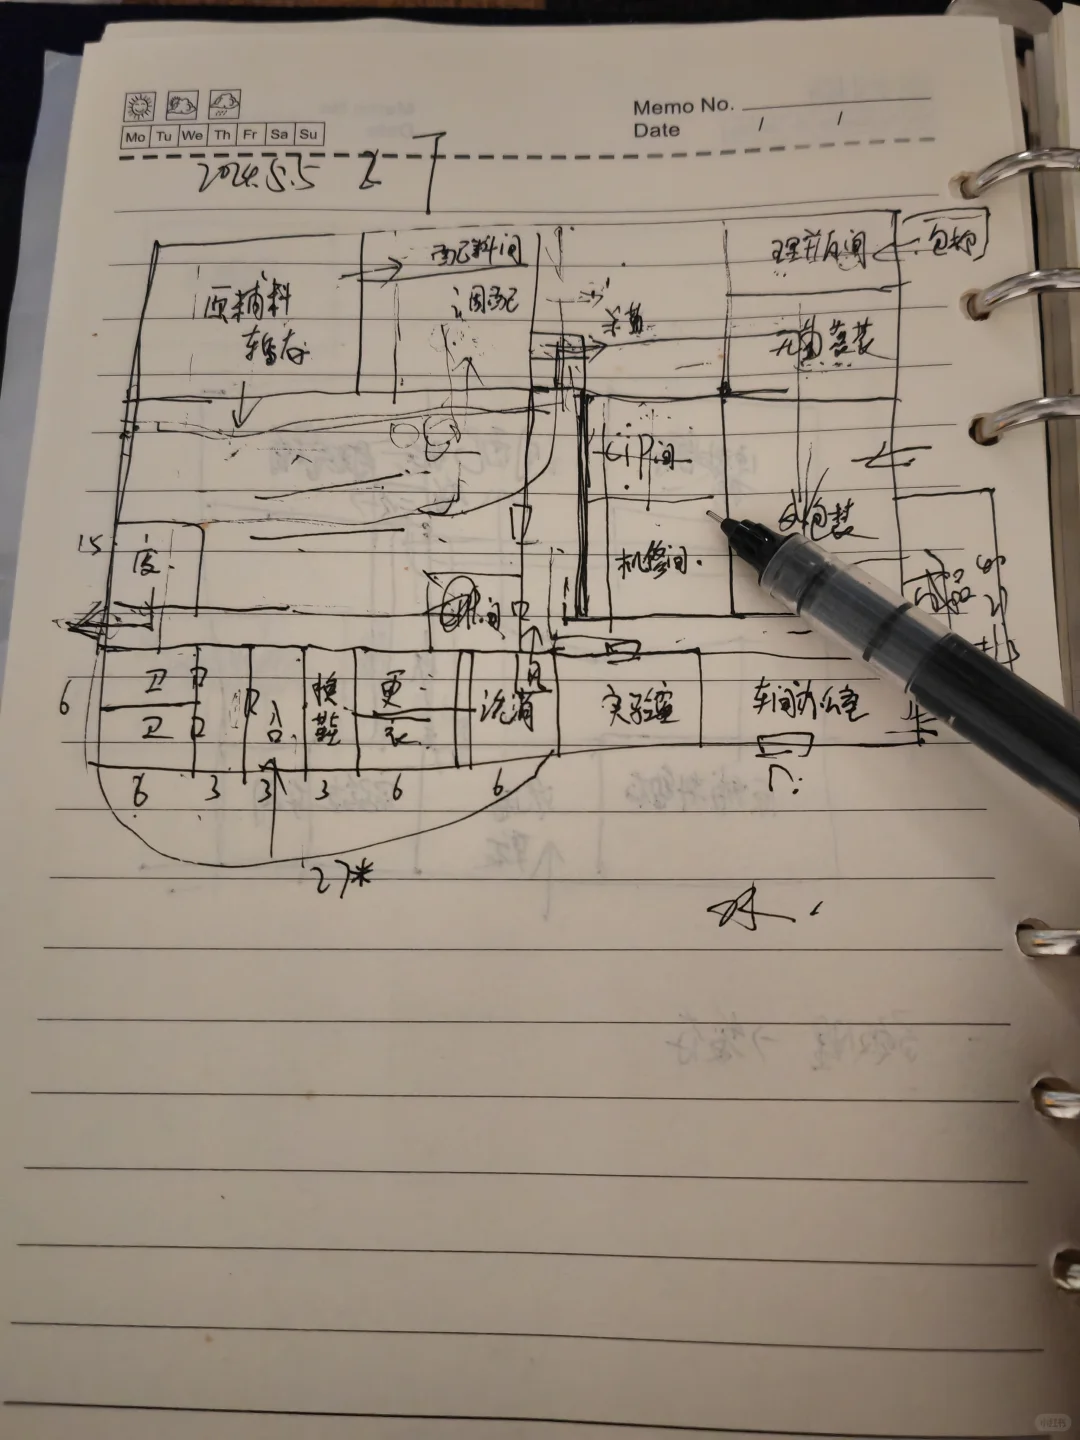 Memo No.
Mo Tu We Th Fr Sa Su
Date / /
2024.5.5
配料间
理瓶间
包材
原辅料
暂存
调配
杀菌
无菌灌装
CIP间
外包装
15
废
机修间.
间
6
卫
卫
换鞋
更衣
洗消
风
实验室
车间办公室
门:
6 3 3 3 6 6
27*
小红书